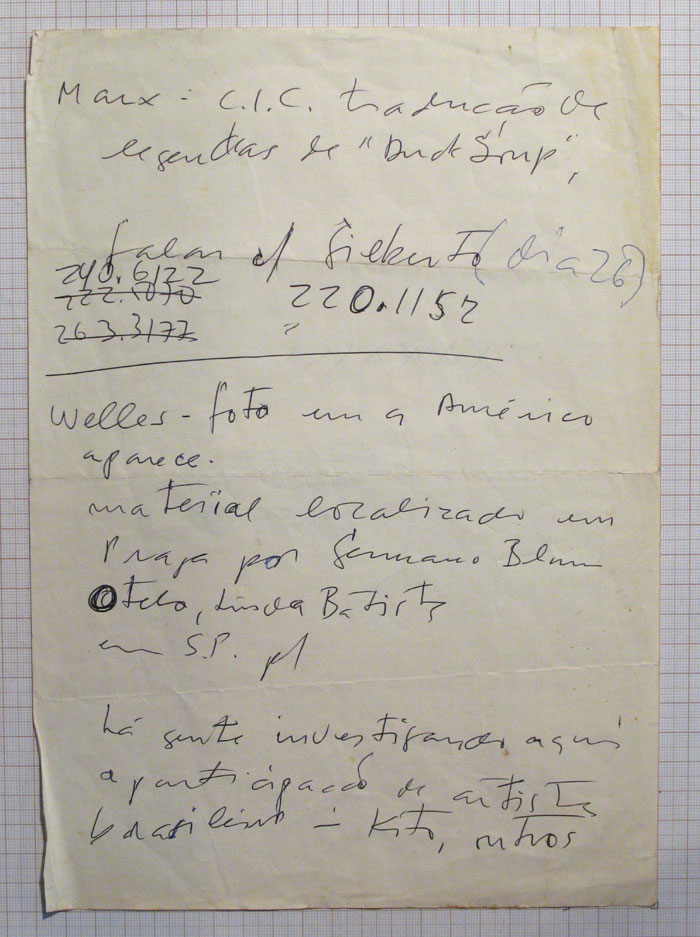 Marx - C.I.C. tradução de
legendas de "Duck Soup",
falar c/ Gilberto (dia 26)
240.6122
222.1070
220.1152
263.3177
"
Welles - foto em q Américo
aparece.
material localizado em
Praga por Germano Blum
Otelo, Linda Batista
em S.P. p/
há gente investigando aqui
a participação de artistas
brasileiros - Kito, outros